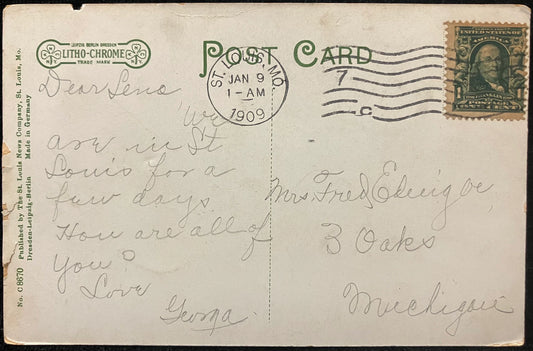 LEIPZIG BERLIN DRESDEN
LITHO-CHROME
TRADE MARK
POST CARD
ST. LOUIS, MO.
JAN 9
1-AM
1909
7
C
UNITED STATES OF AMERICA
POSTAGE
ONE CENT
No. C 8670 Published by The St. Louis News Company, St. Louis, Mo.
Dresden-Leipzig-Berlin Made in Germany
Dear Lena
We
are in St
Louis for a
few days
How are all of
you?
Love
Georga
Mrs. Fred
3 Oaks
Michigan